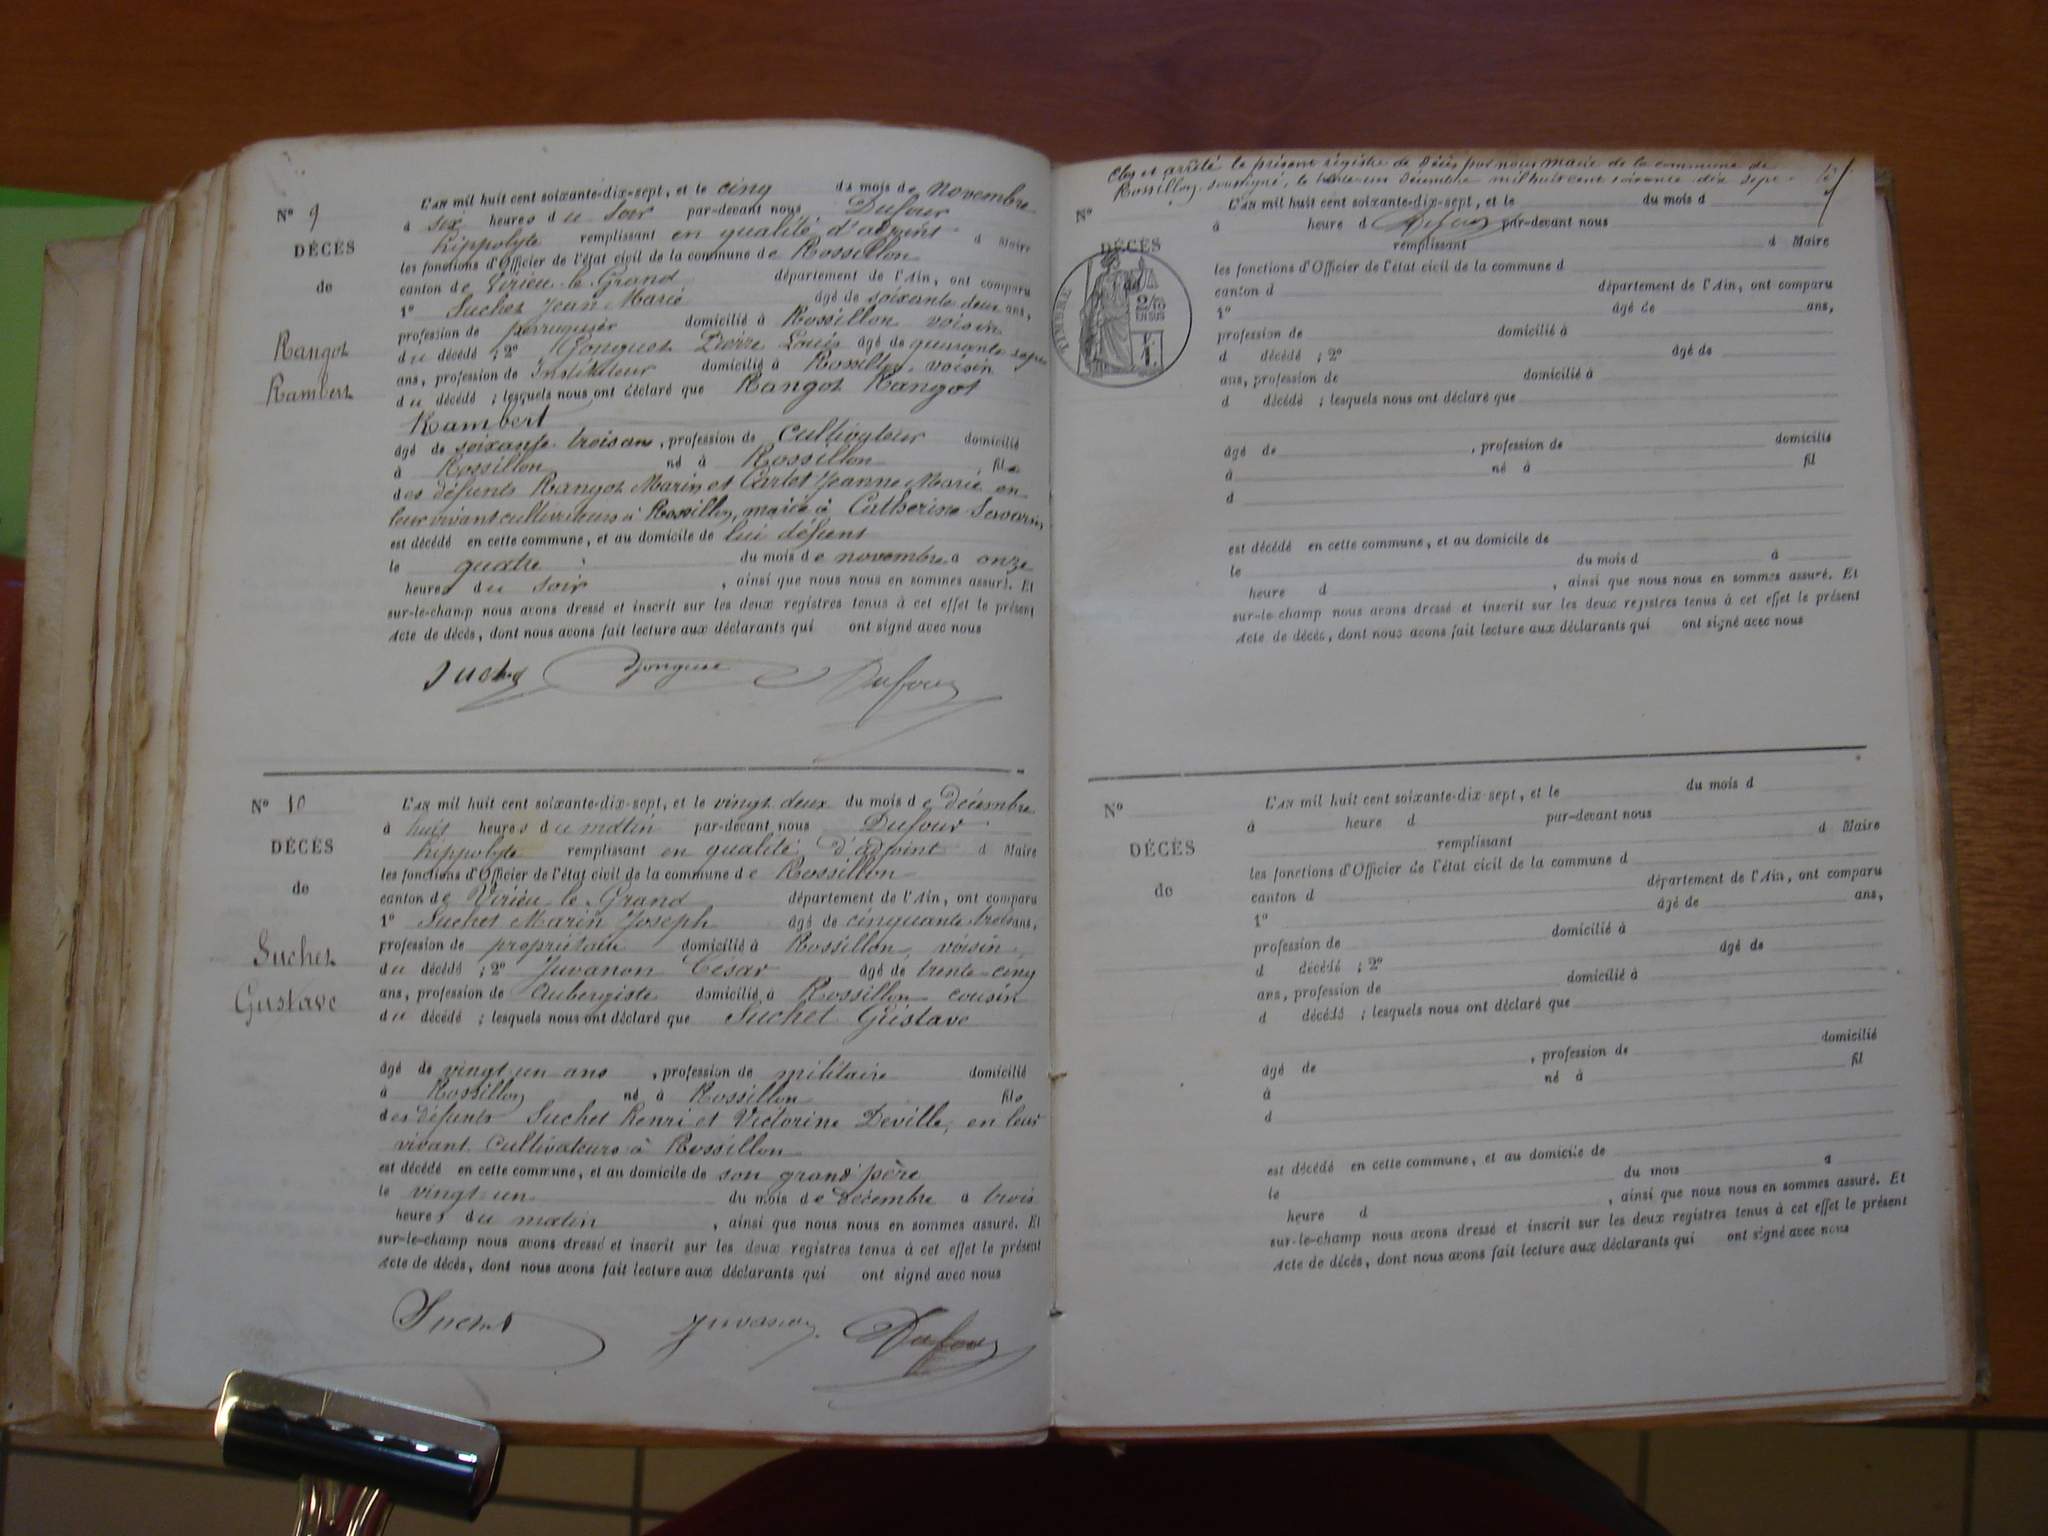 N° 9
DÉCÈS
de
Rangot
Rambert
L'AN mil huit cent soixante-dix-sept, et le cinq du mois de novembre
à six heures du soir par-devant nous Dufour
hippolyte remplissant en qualité d'adjoint d Maire
les fonctions d'Officier de l'état civil de la commune de Rossillon
canton de Virieu le Grand département de l'Ain, ont comparu
1° Suchet Jean Marie âgé de soixante deux ans,
profession de perruquier domicilié à Rossillon voisin
du décédé ; 2° Pierre Louis âgé de quarante sept
ans, profession de Instituteur domicilié à Rossillon, voisin
du décédé ; lesquels nous ont déclaré que Rangot Rangot
Rambert
âgé de soixante trois ans, profession de Cultivateur domicilié
à Rossillon né à Rossillon, fils
des défunts Rangot Marin et Carlet Jeanne Marie en
leur vivant cultivateurs à Rossillon, marié à Catherine Savarin
est décédé en cette commune, et au domicile de lui défunt
le quatre du mois de novembre à onze
heures du soir, ainsi que nous nous en sommes assuré. Et
sur-le-champ nous avons dressé et inscrit sur les deux registres tenus à cet effet le présent
Acte de décès, dont nous avons fait lecture aux déclarants qui ont signé avec nous
Suchet Dufour
N° 10
DÉCÈS
de
Suchet
Gustave
L'AN mil huit cent soixante-dix-sept, et le vingt deux du mois de décembre
à huit heures du matin par-devant nous Dufour
hippolyte remplissant en qualité d'adjoint d Maire
les fonctions d'Officier de l'état civil de la commune de Rossillon
canton de Virieu le Grand département de l'Ain, ont comparu
1° Suchet Marin Joseph âgé de cinquante trois ans,
profession de propriétaire domicilié à Rossillon, voisin,
du décédé ; 2° Juvanon César âgé de trente-cinq
ans, profession de Aubergiste domicilié à Rossillon cousin
du décédé ; lesquels nous ont déclaré que Suchet Gustave
âgé de vingt un ans, profession de militaire domicilié
à Rossillon né à Rossillon fils
des défunts Suchet henri et Victorine Deville, en leur
vivant Cultivateurs à Rossillon
est décédé en cette commune, et au domicile de son grand père
le vingt un du mois de Décembre à trois
heures du matin, ainsi que nous nous en sommes assuré. Et
sur-le-champ nous avons dressé et inscrit sur les deux registres tenus à cet effet le présent
Acte de décès, dont nous avons fait lecture aux déclarants qui ont signé avec nous
Suchet Juvanon Dufour
Clos et arrêté le présent régistre de Décès par nous maire de la commune de
Rossillon soussigné, le trente-un Décembre mil huit cent soixante dix sept
N°
DÉCÈS
TIMBRE
2/10
EN SUS
L'AN mil huit cent soixante-dix-sept, et le du mois d
à heure d Dufour par-devant nous
remplissant d Maire
les fonctions d'Officier de l'état civil de la commune d
canton d département de l'Ain, ont comparu
1° âgé de ans,
profession de domicilié à
d décédé ; 2° âgé de
ans, profession de domicilié à
d décédé ; lesquels nous ont déclaré que
âgé de , profession de domicilié
à né à fil
d
est décédé en cette commune, et au domicile de
le du mois d à
heure d , ainsi que nous nous en sommes assuré. Et
sur-le-champ nous avons dressé et inscrit sur les deux registres tenus à cet effet le présent
Acte de décès, dont nous avons fait lecture aux déclarants qui ont signé avec nous
N°
DÉCÈS
de
L'AN mil huit cent soixante-dix-sept, et le du mois d
à heure d par-devant nous
remplissant d Maire
les fonctions d'Officier de l'état civil de la commune d
canton d département de l'Ain, ont comparu
1° âgé de ans,
profession de domicilié à
d décédé ; 2° âgé de
ans, profession de domicilié à
d décédé ; lesquels nous ont déclaré que
âgé de , profession de domicilié
à né à fil
d
est décédé en cette commune, et au domicile de
le du mois à
heure d , ainsi que nous nous en sommes assuré. Et
sur-le-champ nous avons dressé et inscrit sur les deux registres tenus à cet effet le présent
Acte de décès, dont nous avons fait lecture aux déclarants qui ont signé avec nous